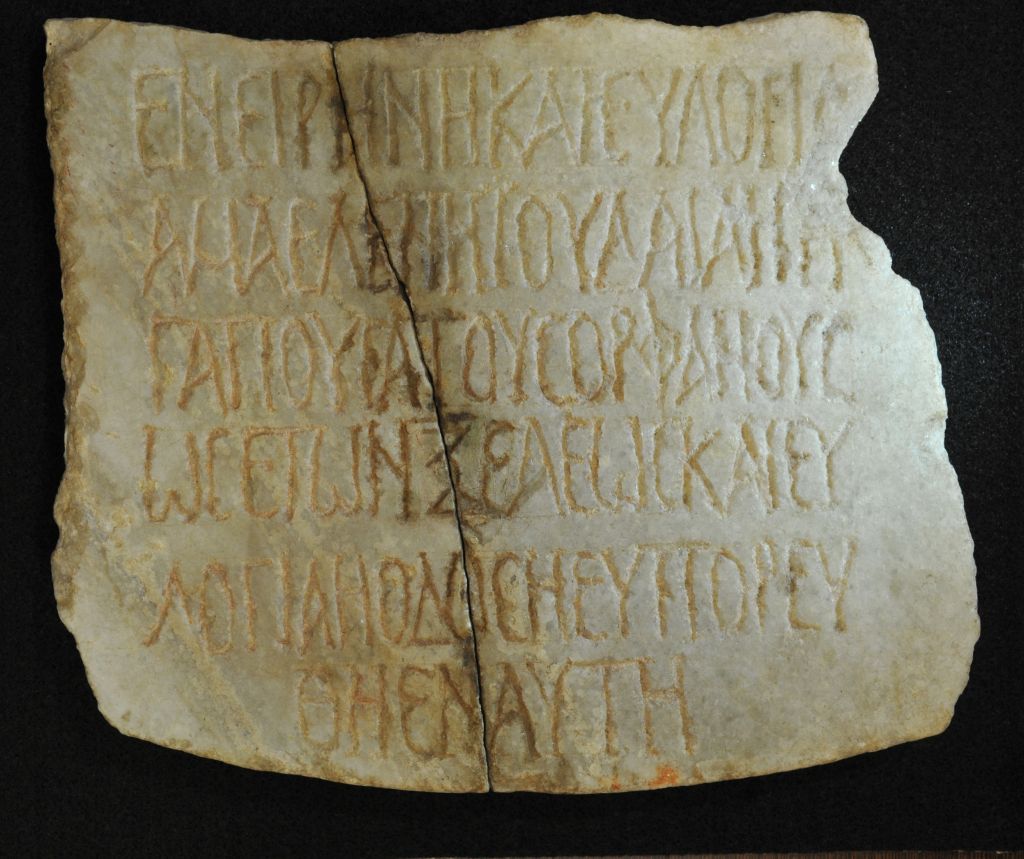 ΕΝΕΙΡΗΝΗΚΑΙΕΥΛΟΓΙΑ
ΑΜΑΕΛΕΝΗΪΟΥΔΑΙΑΗ
ΓΑΠΟΥCΑΤΟΥCΟΡΦΑΝΟΥC
ΩCΕΤΩΝΞΕΛΕΩCΚΑΙΕΥ
ΛΟΓΙΑΗΟΔΟCΗΕΥΠΟΡΕΥ
ΘΗΕΝΑΥΤΗ